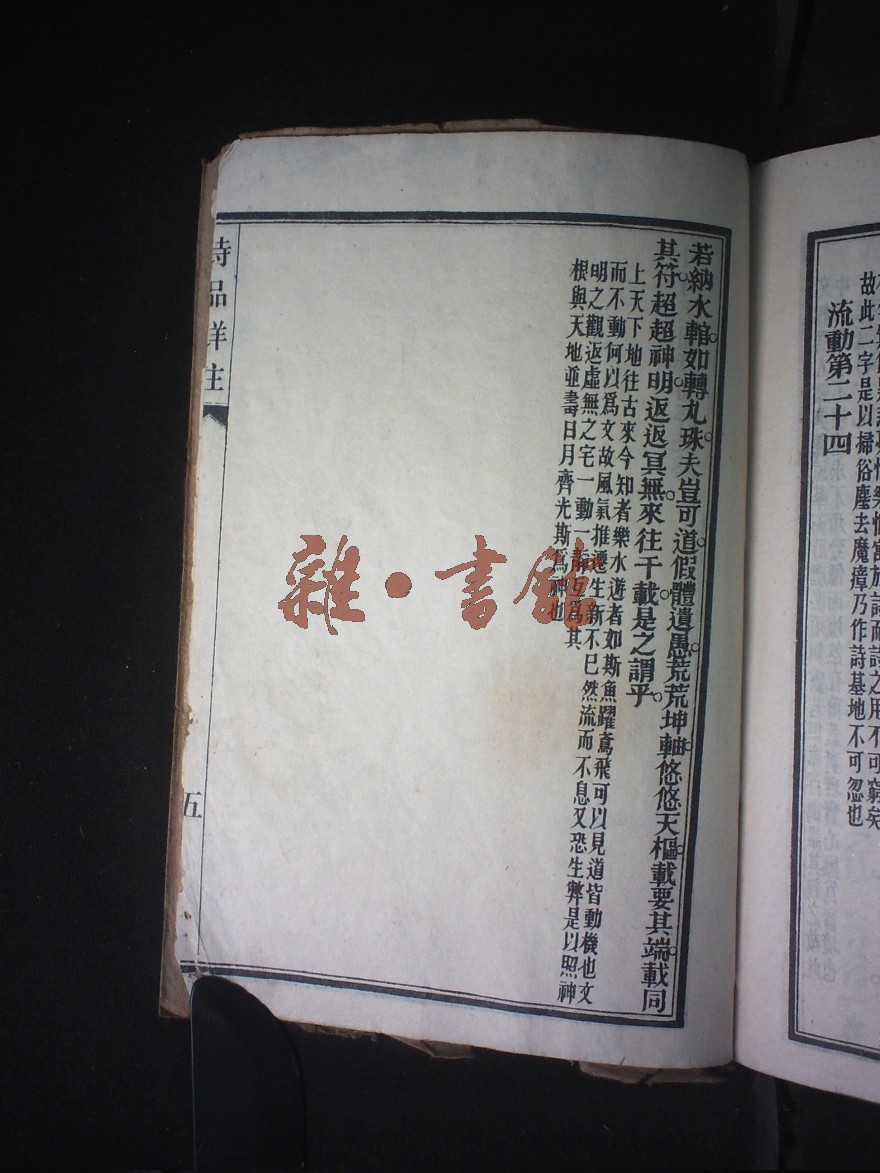 故此二字是以掃俗塵去魔瘴乃作詩基地不可忽也
流動第二十四
若納水輨如轉丸珠夫豈可道假體遺愚荒荒坤軸悠悠天樞載要其端載同
其符超超神明返返冥無來往千載是之謂乎
上天下地往古來今知者樂水遊者如斯魚躍鳶飛可以見道皆動機也文
而不動何以爲文故風氣推遷生新不已然流而不息又恐生弊是以照神
明之觀返虛無之宅一動一靜互爲其
根與天地並壽日月齊光斯爲神也
詩品詳注
五
雜·書館